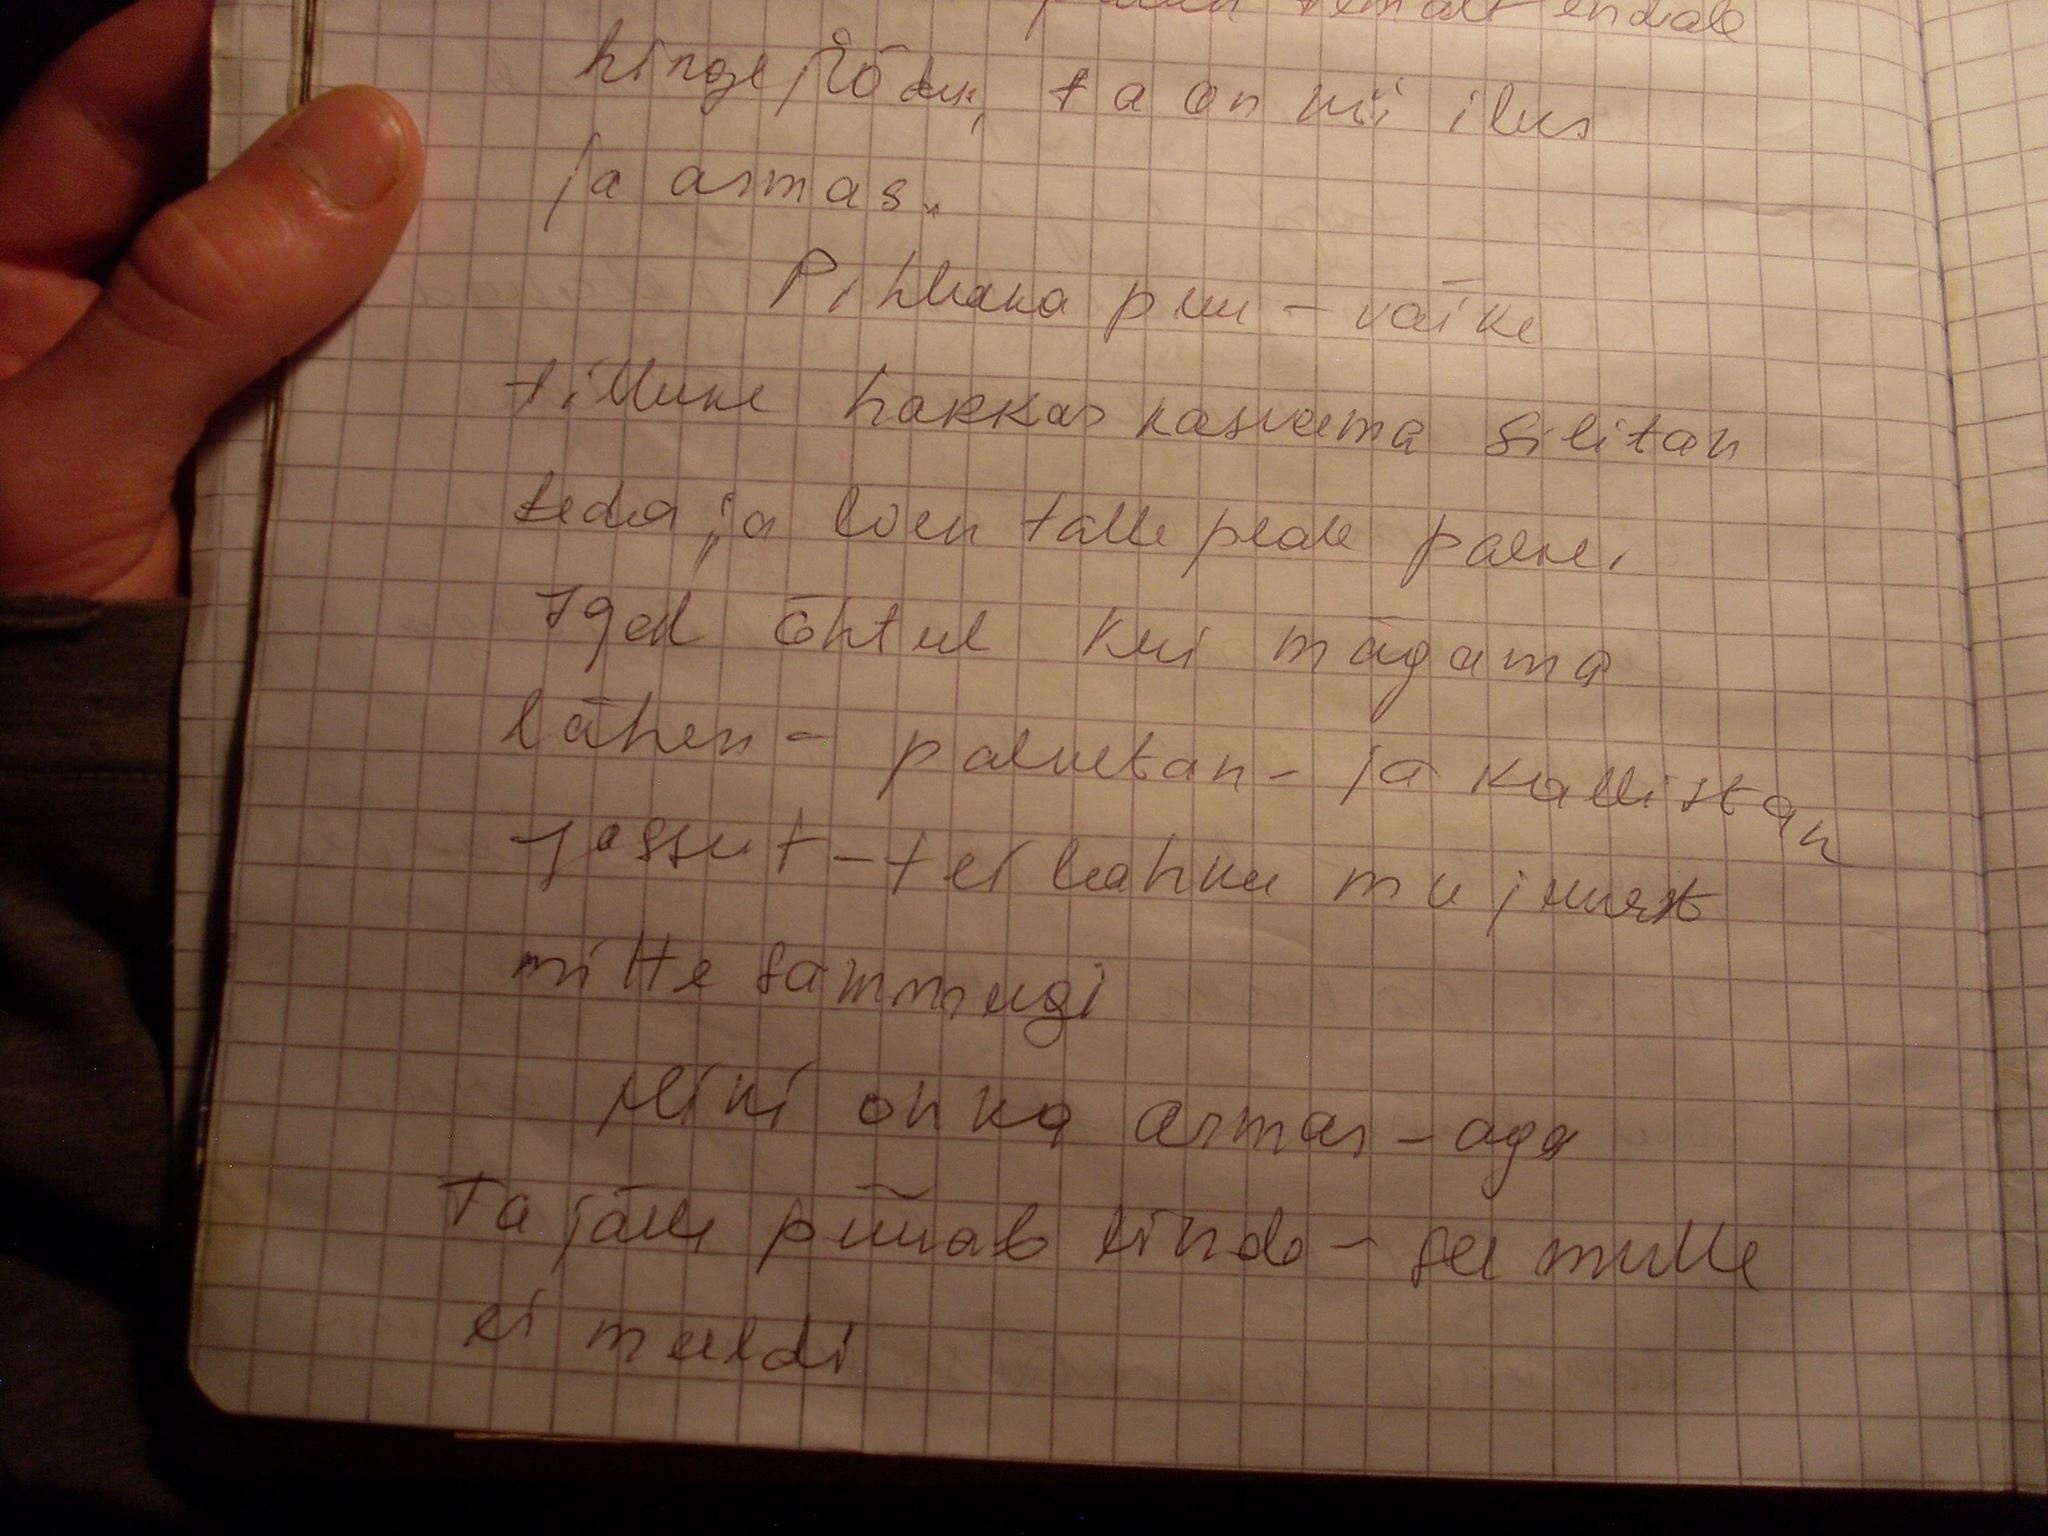 palun temalt endale
hinge jõudu, ta on nii ilus
ja armas.
Pihlaka puu - väike
tilluke hakkas kasvama silitan
teda ja loen talle peale palve.
Igal õhtul kui mägama
lähen - palvetan - ja kallistan
Jassut - t ei lahku mu juurest
mitte sammugi
Miki on ka armas - aga
Ta jälle püüab linde - see mulle
ei meeldi